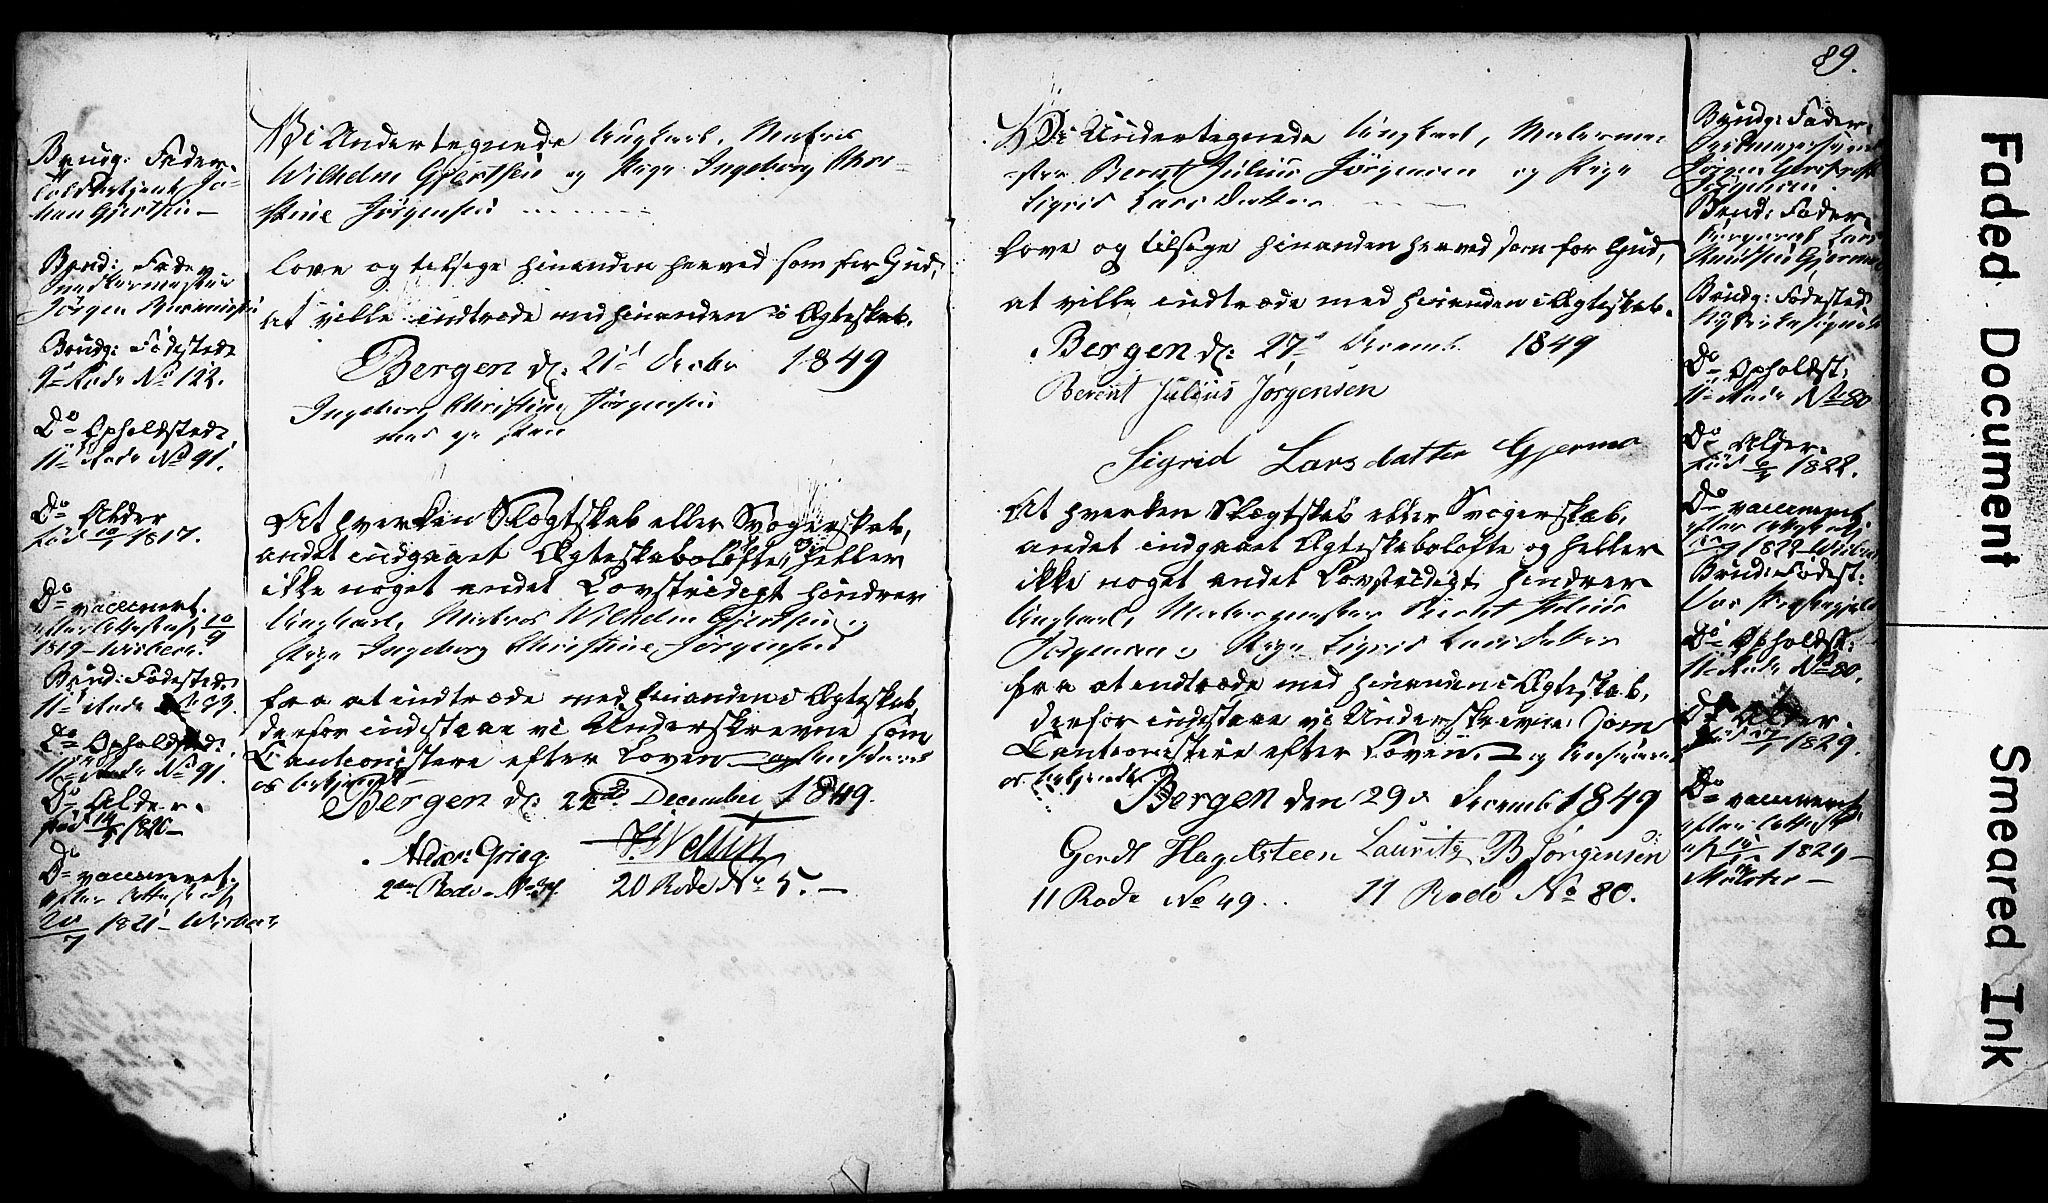 Brudg: Fader.
Johan Gjertsen —
Brud: Fader
Jørgen
Brudg: Fødested
9de Rode No 122.
Do Opholdsted
11te Rode No 91.
Do Alder
født 1817.
Do vaccineret
efter Attest af 10/9
1819 — Wisberg
Brud: Fødested
11te Rode No 83.
Do Opholdsted:
11te Rode No 91.
Do Alder.
født 14/5 1820 —
Do vaccineret.
efter Attest af
20/7 1821 — Wisberg
Vi Undertegnede Ungkarl, Matros
Wilhelm Gjertsen og Pige Ingeborg Chri-
stine Jørgensen
love og tilsige hinanden herved som for Gud,
at ville indtræde med hinanden i Ægteskab.
Bergen d: 21d Decbr 1849
Ingeborg Christine Jørgensen
At hverken Slægtskab eller Svogerskab,
andet indgaaet Ægteskabsløfte, og heller
ikke noget andet Lovstridigt hindrer
Ungkarl, Matros Wilhelm Gjertsen og
Pige Ingeborg Christine Jørgensen
fra at indtræde med hinanden i Ægteskab,
derfor indestaae vi Underskrevne som
Cautionister efter Loven — og Ansvaret
os bekjendt
Bergen d: 22de December 1849.
Alexr Grieg.
2den Rode No
20 Rode No 5. —
89.
Vi Undertegnede Ungkarl, Malerme-
ster Bernt Julius Jörgensen og Pige
Sigrid Lars Datter
love og tilsige hinanden herved som for Gud,
at ville indtræde med hinanden i Ægteskab.
Bergen d: 27de Decemb 1849
Berent Julius Jørgensen
Sigrid Larsdatter Gjermo
At hverken Slægtskab eller Svogerskab,
andet indgaaet Ægteskabsløfte og heller
ikke noget andet Lovstridigt hindrer
Ungkarl, Malermester Berent Julius
Jörgensen, Pige Sigrid Larsdatter
fra at indtræde med hinanden i Ægteskab,
derfor indestaae vi Underskrevne som
Cautionister efter Loven. — og Ansvaret
os bekjendt.
Bergen den 29d Decemb 1849
Gerdt Hagelsteen Lauritz B Jörgensen
11 Rode No 49. 11 Rode No 80.
Brudg: Fader.
Jörgen
Jörgensen.
Brud: Fader
Lars
Knudsen Gjermo
Brudg: Fødested
Do Opholdst:
11te Rode No 80
Do Alder.
født 1822.
Do vaccineret
efter Attest af
1822 — Wisberg
Brud: Fødest:
Vos Præstegjeld
Do Opholdst:
11te Rode No 80.
Do Alder.
født 1829.
Do vaccineret
efter Attest
af 1829 —
Münster —
Faded Document
Smeared Ink